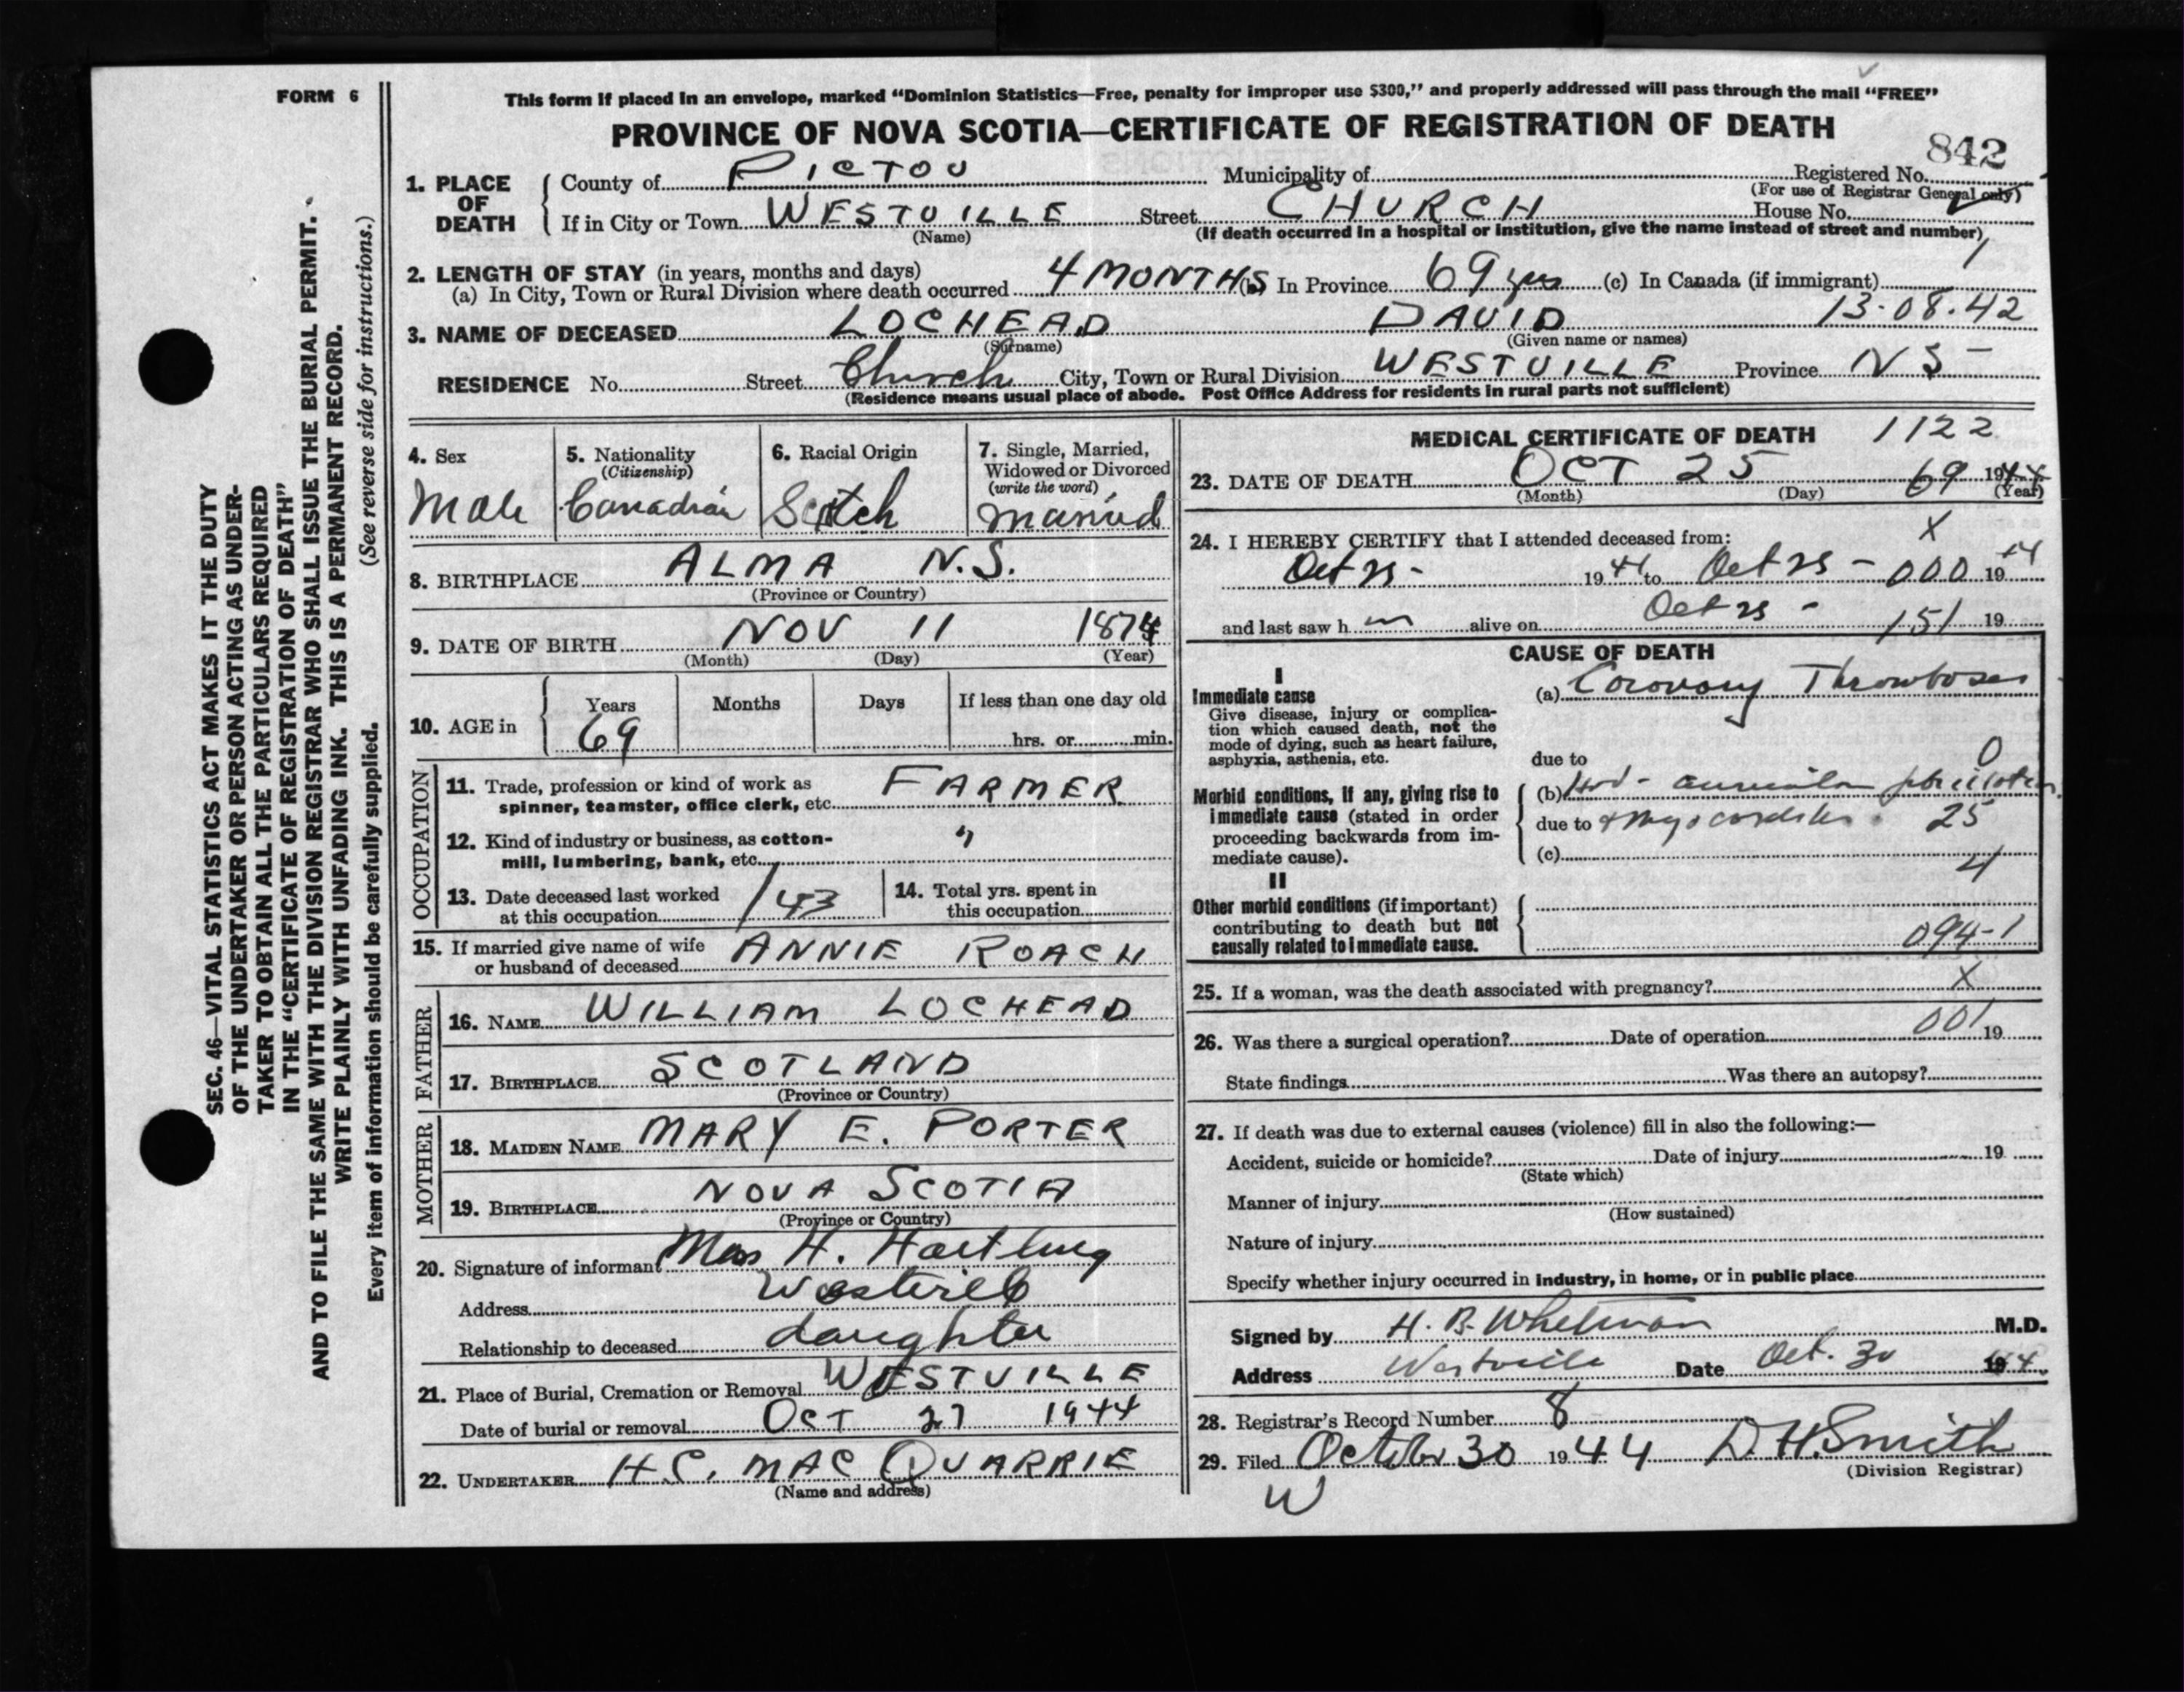 FORM 6
This form if placed in an envelope, marked “Dominion Statistics—Free, penalty for improper use $300,” and properly addressed will pass through the mail “FREE”
PROVINCE OF NOVA SCOTIA—CERTIFICATE OF REGISTRATION OF DEATH
842
1. PLACE OF DEATH County of PICTOU Municipality of Registered No.
(For use of Registrar General only)
If in City or Town WESTVILLE Street CHURCH House No.
(Name) (If death occurred in a hospital or institution, give the name instead of street and number)
2. LENGTH OF STAY (in years, months and days)
(a) In City, Town or Rural Division where death occurred 4 MONTHS (b) In Province 69 yrs (c) In Canada (if immigrant) 1
13-08-42
3. NAME OF DECEASED LOCHEAD DAVID
(Surname) (Given name or names)
RESIDENCE No. Street Church City, Town or Rural Division WESTVILLE Province N S -
(Residence means usual place of abode. Post Office Address for residents in rural parts not sufficient)
4. Sex Male
5. Nationality (Citizenship) Canadian
6. Racial Origin Scotch
7. Single, Married, Widowed or Divorced (write the word) Married
8. BIRTHPLACE ALMA N.S.
(Province or Country)
9. DATE OF BIRTH NOV 11 1874
(Month) (Day) (Year)
10. AGE in Years 69 Months Days If less than one day old
hrs. or min.
OCCUPATION
11. Trade, profession or kind of work as
spinner, teamster, office clerk, etc. FARMER
12. Kind of industry or business, as cotton-
mill, lumbering, bank, etc. "
13. Date deceased last worked
at this occupation /43
14. Total yrs. spent in
this occupation
15. If married give name of wife
or husband of deceased ANNIE ROACH
FATHER
16. NAME WILLIAM LOCHEAD
17. BIRTHPLACE SCOTLAND
(Province or Country)
MOTHER
18. MAIDEN NAME MARY E. PORTER
19. BIRTHPLACE NOVA SCOTIA
(Province or Country)
20. Signature of informant Mrs H. Hartling
Address Westville
Relationship to deceased daughter
21. Place of Burial, Cremation or Removal WESTVILLE
Date of burial or removal OCT 27 1944
22. UNDERTAKER H.C. MAC QUARRIE
(Name and address)
MEDICAL CERTIFICATE OF DEATH 1122
23. DATE OF DEATH OCT 25 69 1944
(Month) (Day) (Year)
24. I HEREBY CERTIFY that I attended deceased from: X
Oct 25 - 1944 to Oct 25 - 000 1944
and last saw h m alive on Oct 25 - 151 19
CAUSE OF DEATH
I
Immediate cause
Give disease, injury or complica-
tion which caused death, not the
mode of dying, such as heart failure,
asphyxia, asthenia, etc.
(a) Coronary Thrombosis
due to 0
Morbid conditions, if any, giving rise to
immediate cause (stated in order
proceeding backwards from im-
mediate cause).
(b) auricular fibrillation
due to & Myocarditis. 25
(c) 4
II
Other morbid conditions (if important)
contributing to death but not
causally related to immediate cause.
094-1
25. If a woman, was the death associated with pregnancy? X
26. Was there a surgical operation? Date of operation 001 19
State findings Was there an autopsy?
27. If death was due to external causes (violence) fill in also the following:—
Accident, suicide or homicide? Date of injury 19
(State which)
Manner of injury
(How sustained)
Nature of injury
Specify whether injury occurred in industry, in home, or in public place
Signed by H. B. Whitman M.D.
Address Westville Date Oct. 30 1944
28. Registrar's Record Number 8
29. Filed October 30 1944 D. H. Smith
(Division Registrar)
W
SEC. 46—VITAL STATISTICS ACT MAKES IT THE DUTY
OF THE UNDERTAKER OR PERSON ACTING AS UNDER-
TAKER TO OBTAIN ALL THE PARTICULARS REQUIRED
IN THE “CERTIFICATE OF REGISTRATION OF DEATH”
AND TO FILE THE SAME WITH THE DIVISION REGISTRAR WHO SHALL ISSUE THE BURIAL PERMIT.
WRITE PLAINLY WITH UNFADING INK. THIS IS A PERMANENT RECORD.
(See reverse side for instructions.)
Every item of information should be carefully supplied.